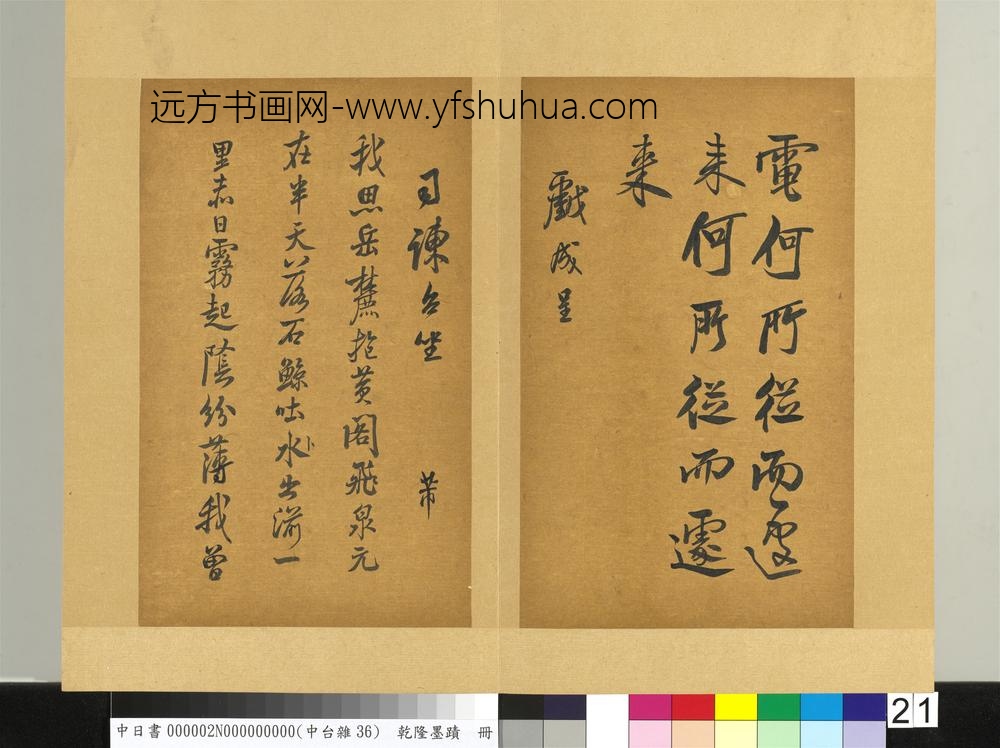 远方书画网-www.yfshuhua.com
電何所從而遽
来何所從而遽
来
戲成呈
司諫台坐 芾
我思岳麓抱黄閣飛泉元
在半天落石鯨吐水出湔一
里赤日霧起陰紛薄我曾
中日書000002N000000000(中台雜36) 乾隆墨蹟 冊
21